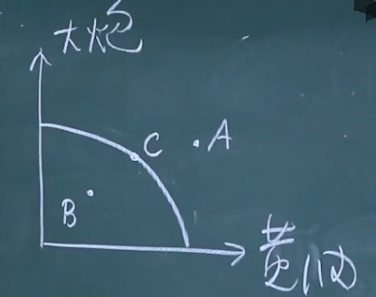 大炮
C
A
B
黄油